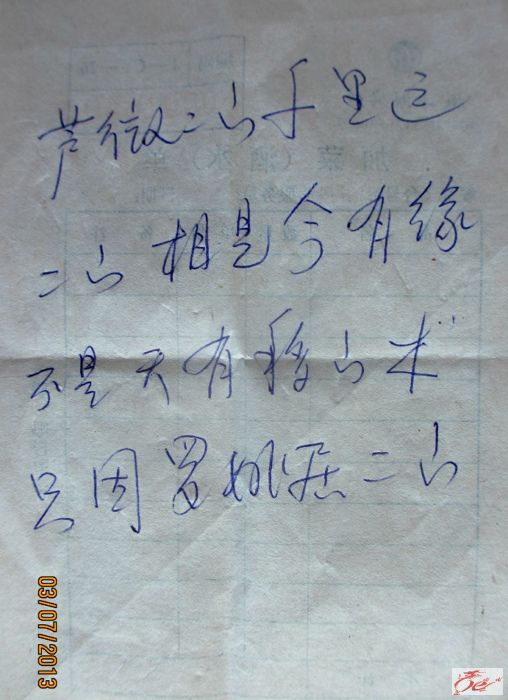 芦微二山千里远
加菜（酒水）单
二山相是今有缘
不是天有移山术
只因罗姚居二山
03/07/2013